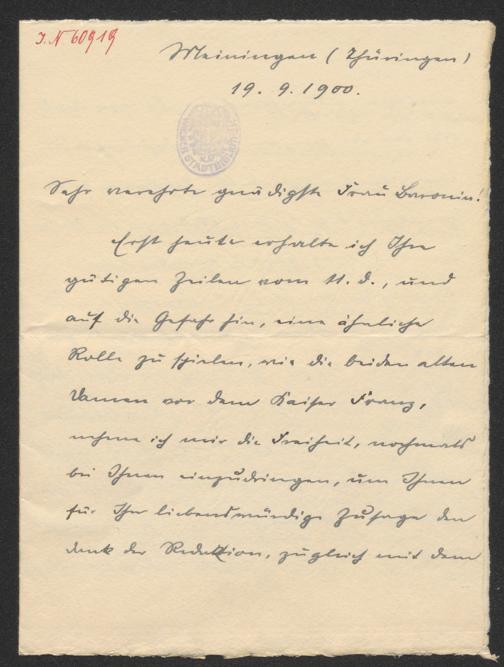 J.N 60919
Meiningen (Thüringen)
19. 9. 1900.
Sehr verehrte gnädigste Frau Baronin!
Erst heute erhalte ich Ihre
gütigen Zeilen vom 11. d., und
auf die Gefahr hin, eine ähnliche
Rolle zu spielen, wie die beiden alten
Damen vor dem Kaiser Franz,
nehme ich mir die Freiheit, nochmals
bei Ihnen einzudringen, um Ihnen
für Ihre liebenswürdige Zusage den
Dank der Redaktion, zugleich mit dem